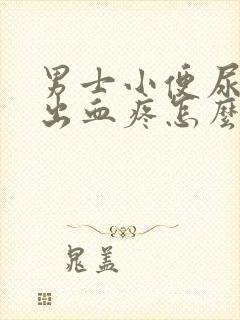 男士小便尿
出血疼怎麼
晁盖